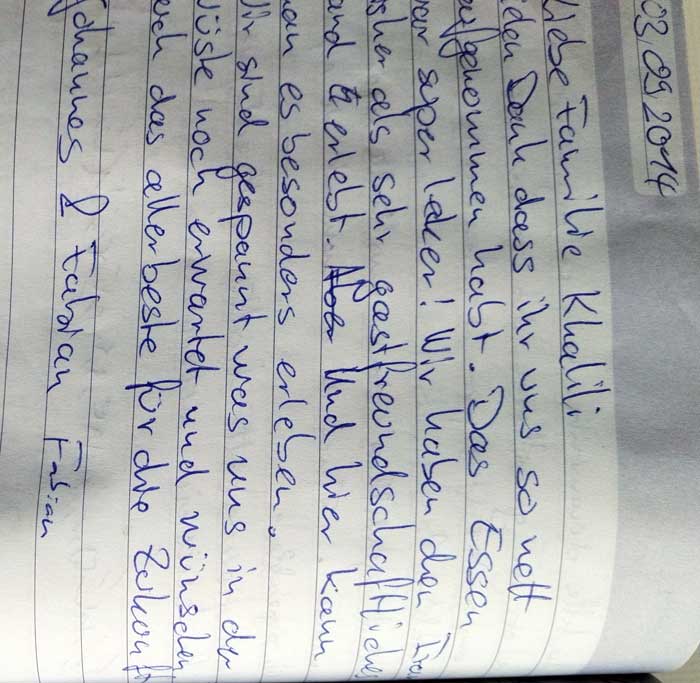 03 09 2014
Liebe Familie Khalili
elen Dank dass ihr uns so nett
aufgenommen habt. Das Essen
war super lecker! Wir haben den Iran
sher als sehr gastfreundschaftliches
and erlebt. Und hier kann
an es besonders erleben.
Wir sind gespannt was uns in der
Wüste noch erwartet und wünschen
euch das allerbeste für die Zukunft
Johannes & Fabian Fabian